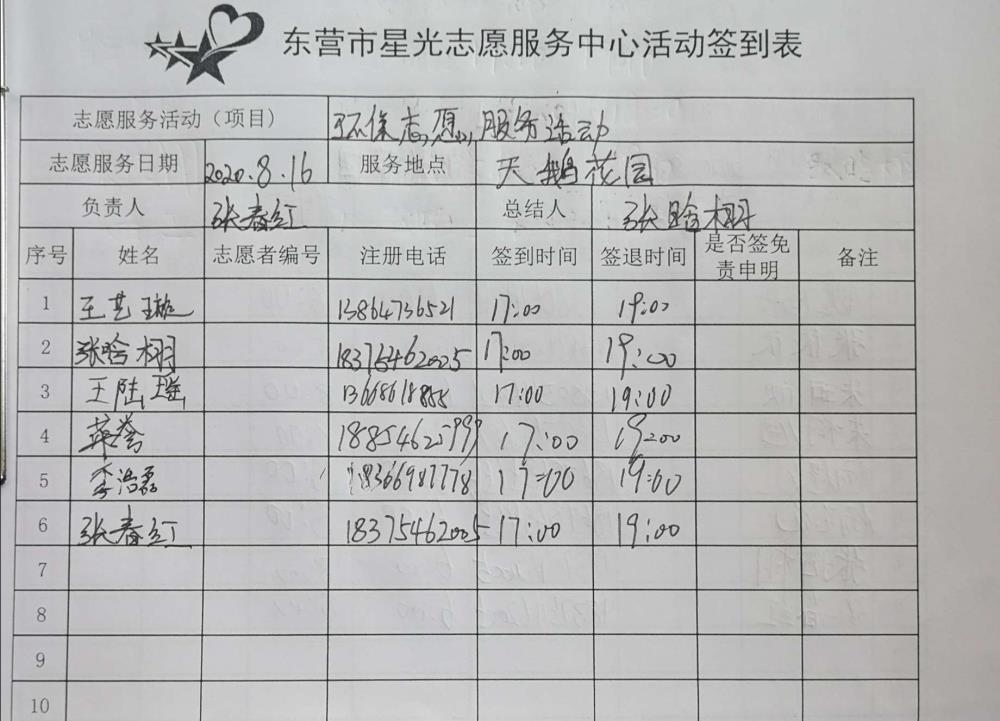 东营市星光志愿服务中心活动签到表
志愿服务活动（项目） 环保志愿服务活动
志愿服务日期 2020.8.16 服务地点 天鹅花园
负责人 张春红 总结人 张晗栩
序号 姓名 志愿者编号 注册电话 签到时间 签退时间 是否签免责申明 备注
1 王艺璇 13864736521 17:00 19:00
2 张晗栩 18375462005 17:00 19:00
3 王陆瑶 17:00 19:00
4 18854625999 17:00 19:00
5 李浩磊 18366987778 17:00 19:00
6 张春红 18375462005 17:00 19:00
7
8
9
10